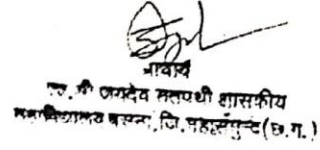 प्राचार्य
स्व. श्री जयदेव सतपथी शासकीय
महाविद्यालय बसना, जि. महासमुन्द (छ.ग.)